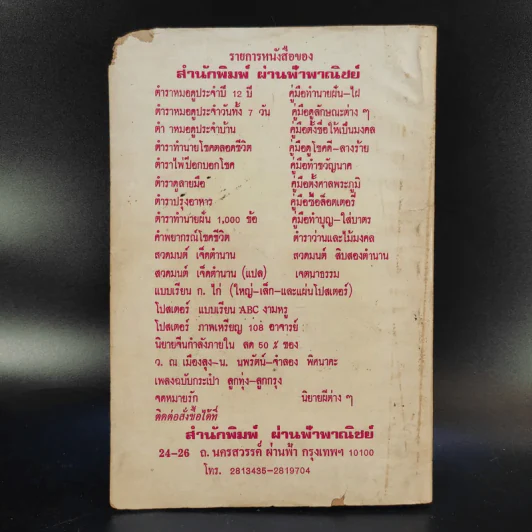 รายการหนังสือของ
สำนักพิมพ์ ผ่านฟ้าพาณิชย์
ตำราหมอดูประจำปี 12 ปี คู่มือทำนายฝัน-ไฝ
ตำราหมอดูประจำวันทั้ง 7 วัน คู่มือดูลักษณะต่าง ๆ
ตำ าหมอดูประจำบ้าน คู่มือตั้งชื่อให้เป็นมงคล
ตำราทำนายโชคตลอดชีวิต คู่มือดูโชคดี-ลางร้าย
ตำราไพ่ป๊อกบอกโชค คู่มือทำขวัญนาค
ตำราดูลายมือ คู่มือตั้งศาลพระภูมิ
ตำราปรุงอาหาร คู่มือซื้อล็อตเตอรี่
ตำราทำนายฝัน 1,000 ข้อ คู่มือทำบุญ-ใส่บาตร
คำพยากรณ์โชคชีวิต ตำราว่านและไม้มงคล
สวดมนต์ เจ็ดตำนาน สวดมนต์ สิบสองตำนาน
สวดมนต์ เจ็ดตำนาน (แปล) เจตนาธรรม
แบบเรียน ก. ไก่ (ใหญ่-เล็ก-และแผ่นโปสเตอร์)
โปสเตอร์ แบบเรียน ABC งามหรู
โปสเตอร์ ภาพเหรียญ 108 อาจารย์
นิยายจีนกำลังภายใน ลด 50 % ของ
ว. ณ เมืองลุง-น. นพรัตน์-จำลอง พิศนาคะ
เพลงฉบับกระเป๋า ลูกทุ่ง-ลูกกรุง
จดหมายรัก นิยายผีต่าง ๆ
ติดต่อสั่งซื้อได้ที่
สำนักพิมพ์ ผ่านฟ้าพาณิชย์
24-26 ถ. นครสวรรค์ ผ่านฟ้า กรุงเทพฯ 10100
โทร. 2813435-2819704